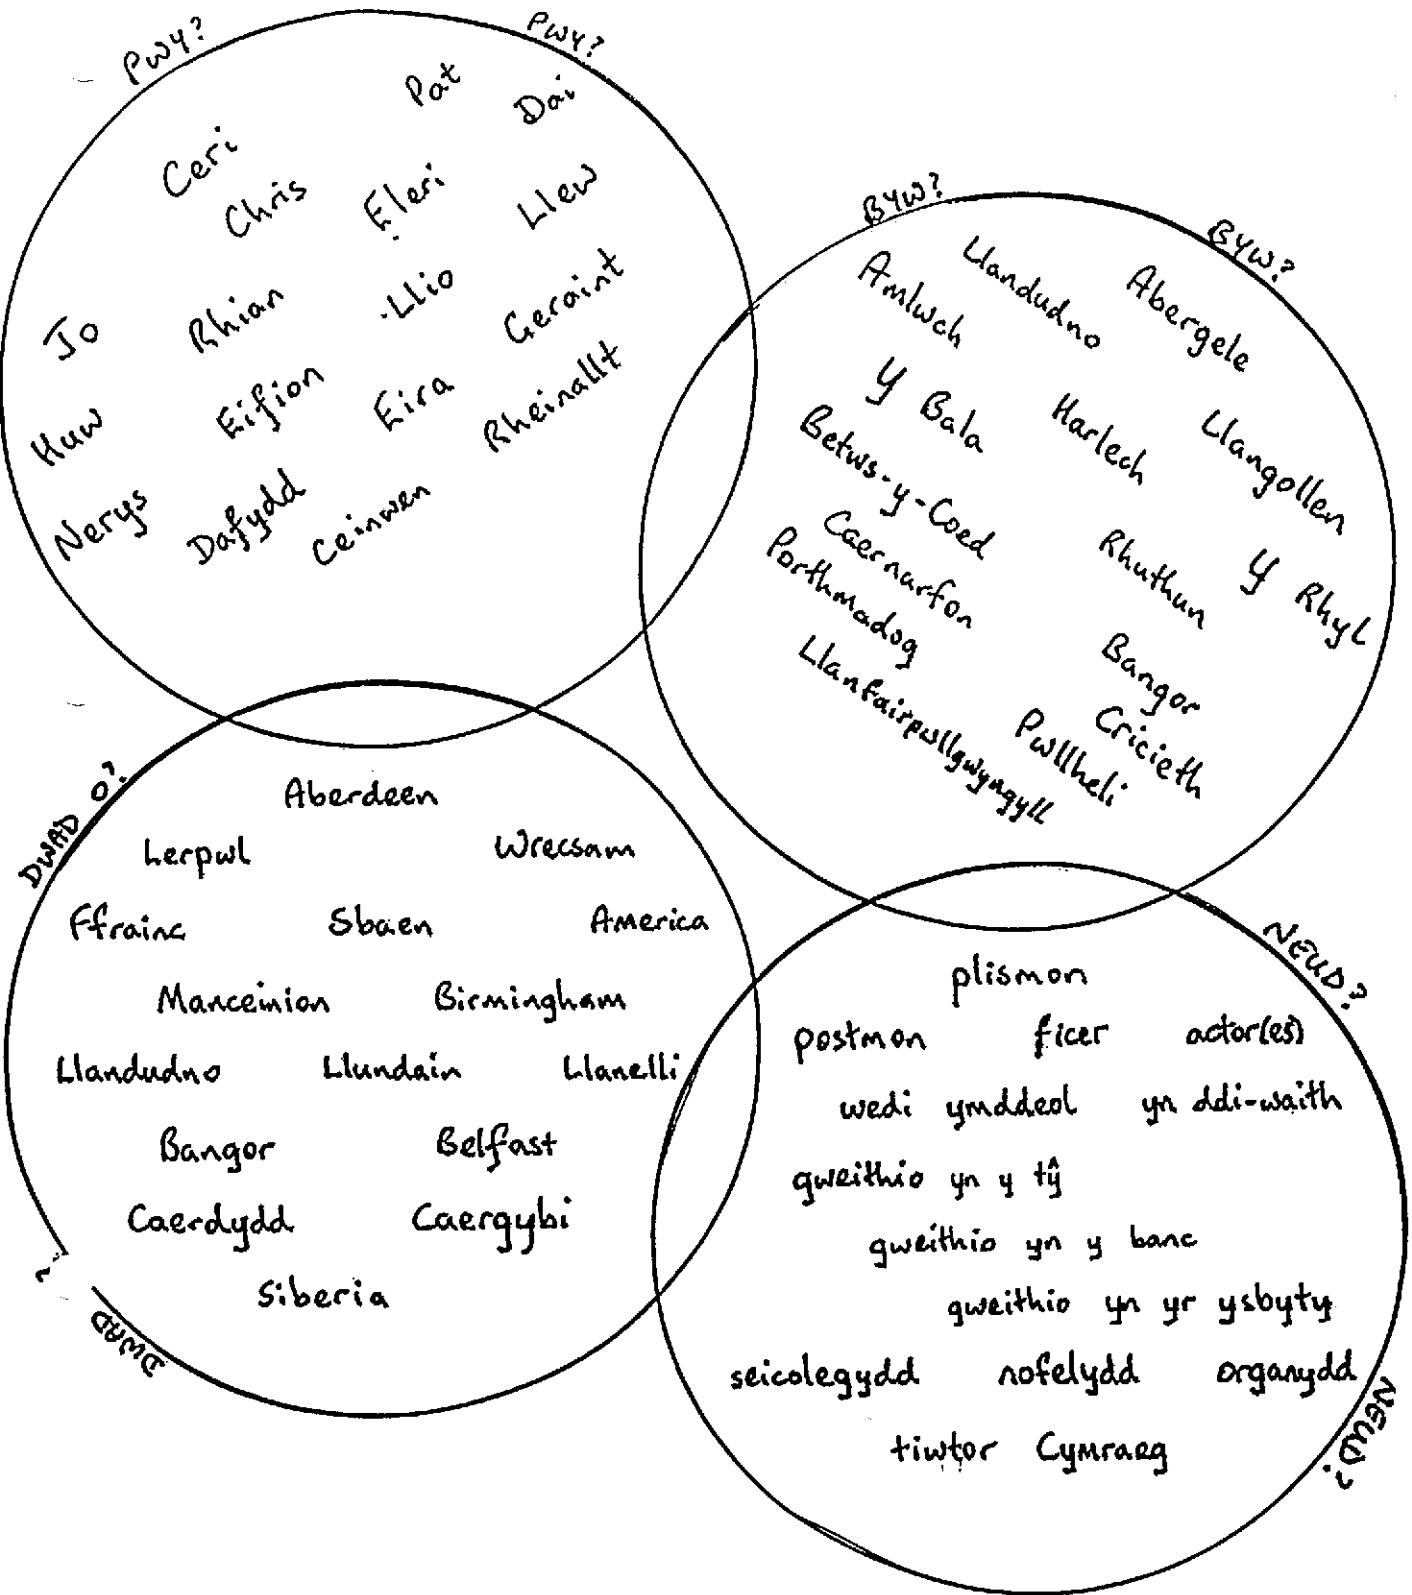 PWY? PWY?
Pat Dai
Ceri Chris Eleri Llew
Jo Rhian Llio Geraint
Huw Eifion Eira Rheinallt
Nerys Dafydd Ceinwen
BYW? BYW?
Amlwch Llandudno Abergele
Y Bala Harlech Llangollen
Betws-y-Coed
Caernarfon Rhuthun Y Rhyl
Porthmadog Bangor
Llanfairpwllgwyngyll Pwllheli Cricieth
DWAD O?
Aberdeen
Lerpwl Wrecsam
Ffrainc Sbaen America
Manceinion Birmingham
Llandudno Llundain Llanelli
Bangor Belfast
Caerdydd Caergybi
Siberia
DWAD ?
NEUD?
plismon
postmon ficer actor(es)
wedi ymddeol yn ddi-waith
gweithio yn y tŷ
gweithio yn y banc
gweithio yn yr ysbyty
seicolegydd nofelydd organydd
tiwtor Cymraeg
NEUD?